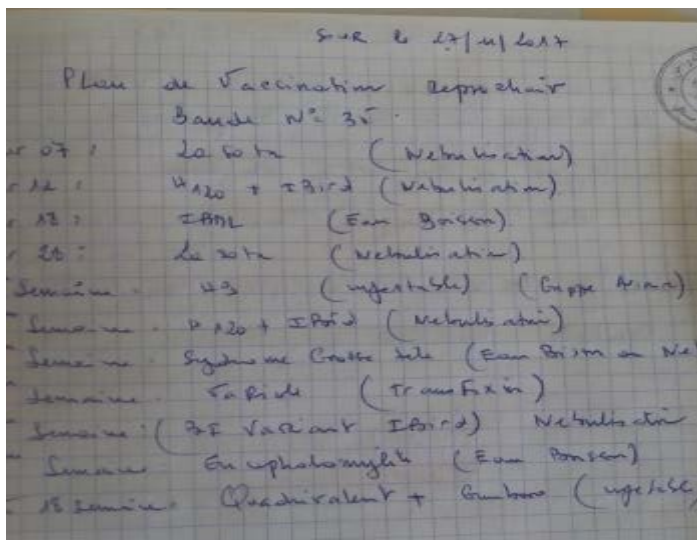 le 27/11/2017
Plan de Vaccination repro chair
Bande N° 35.
07 : La sota (Nebulisation)
12 : H120 + IBird (Nebulisation)
18 : (Eau Boisson)
28 : La sota (Nebulisation)
Semaine. H9 (injectable) (Grippe Aviaire)
Semaine. H120 + IBird (Nebulisation)
Semaine. Syndrome Grosse tete (Eau Boisson ou Neb
Semaine. Variole (Transfixion)
Semaine : (BI Variant IBird) Nebulisation
Semaine Encephalomyelite (Eau Boisson)
18 semaine. Quadrivalent + Gumboro (injectable